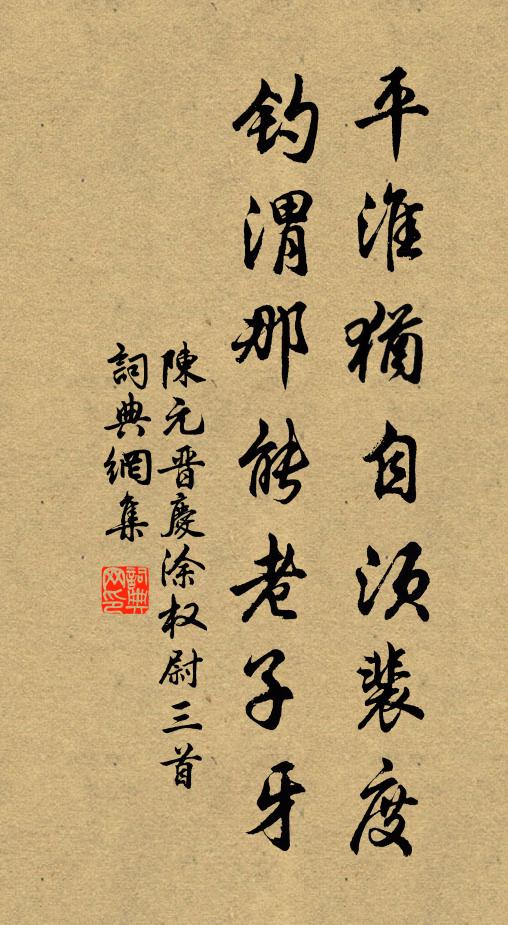 平淮猶自須裴度
釣渭那能老子牙
陳元晋慶涂权尉三首
詞典網集
詞典网印